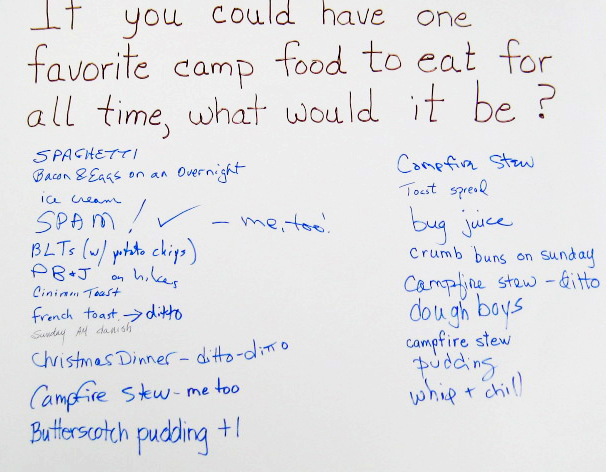 If you could have one
favorite camp food to eat for
all time, what would it be?
SPAGHETTI
Bacon & Eggs on an Overnight
ice cream
SPAM! ✓ - me, too!
BLTs (w/ potato chips)
PB+J on hikes
Cinimon Toast
french toast → ditto
Sunday AM danish
Christmas Dinner - ditto-ditto
Campfire Stew - me too
Butterscotch pudding +1
Campfire Stew
Toast spread
bug juice
crumb buns on sunday
Campfire stew - ditto
dough boys
campfire stew
pudding
whip + chill